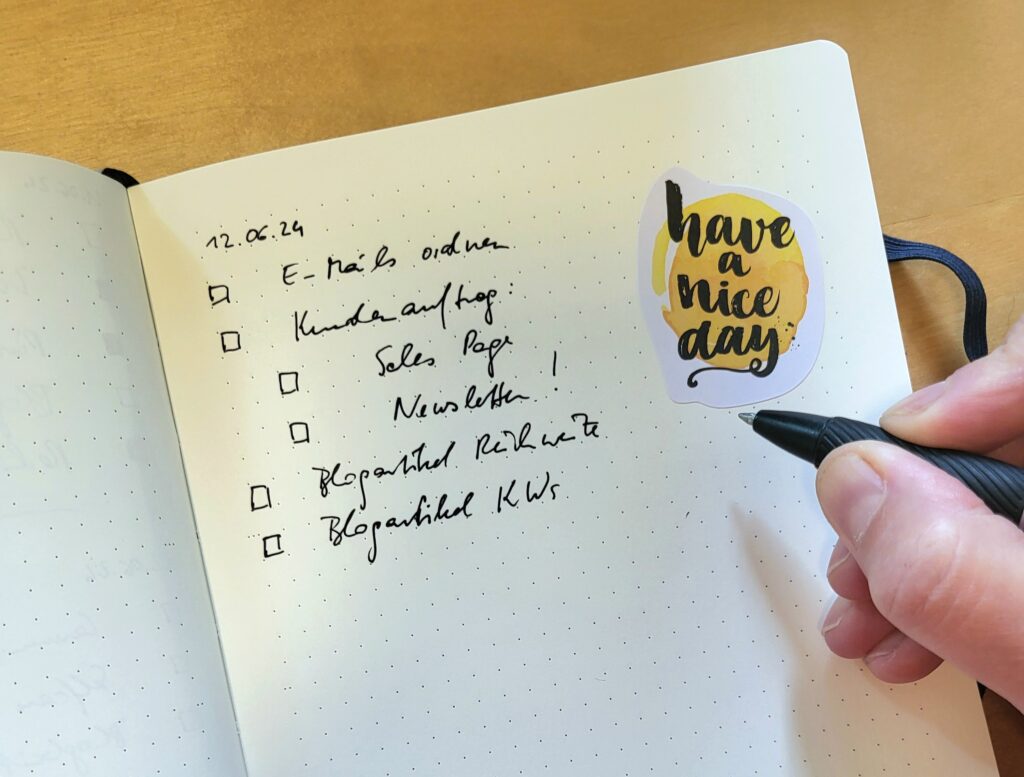 12.06.24
E-Mails ordnen
Kundenauftrag:
Sales Page
Newsletter!
Blogartikel Reichweite
Blogartikel KWs
have
a
nice
day